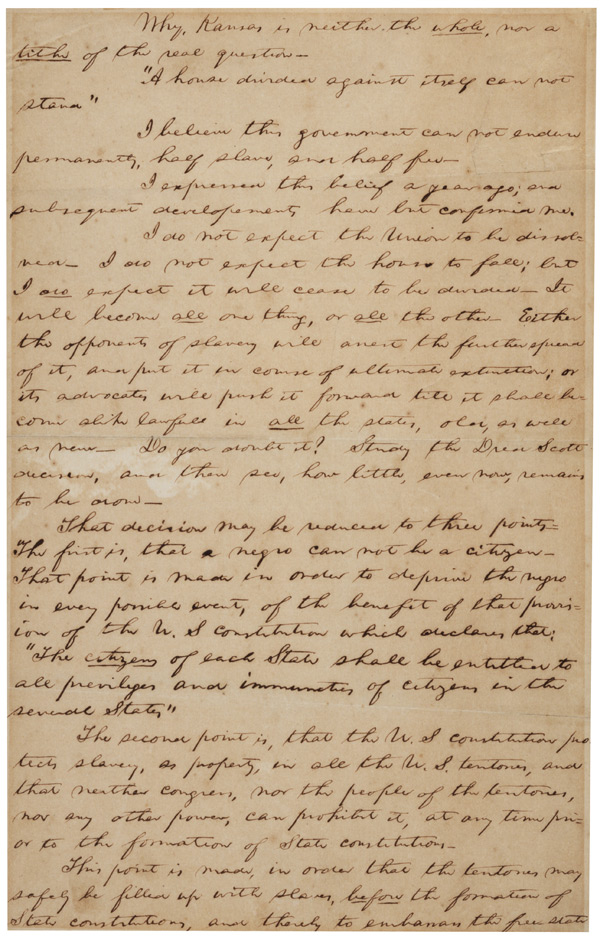 Why, Kansas is neither the whole, nor a
tithe of the real question—
"A house divided against itself can not
stand"
I believe this government can not endure
permanently, half slave, and half free—
I expressed this belief a year ago; and
subsequent developements have but confirmed me.
I do not expect the Union to be dissol-
ved— I do not expect the house to fall; but
I do expect it will cease to be divided— It
will become all one thing, or all the other— Either
the opponents of slavery will arrest the further spread
of it, and put it in course of ultimate extinction; or
its advocates will push it forward till it shall be-
come alike lawfull in all the states, old, as well
as new— Do you doubt it? Study the Dred Scott
decision, and then see, how little, even now, remains
to be done—
That decision may be reduced to three points—
The first is, that a negro can not be a citizen—
That point is made in order to deprive the negro
in every possible event, of the benefit of that provis-
ion of the U. S constitution which declares that:
"The citizens of each State shall be entitled to
all previleges and immunities of citizens in the
several States"
The second point is, that the U. S constitution pro
tects slavery, as property, in all the U. S. teritories, and
that neither congress, nor the people of the teritories,
nor any other power, can prohibit it, at any time pri-
or to the formation of State constitutions—
This point is made, in order that the teritories may
safely be filled up with slaves, before the formation of
State constitutions, and thereby to embarrass the free state